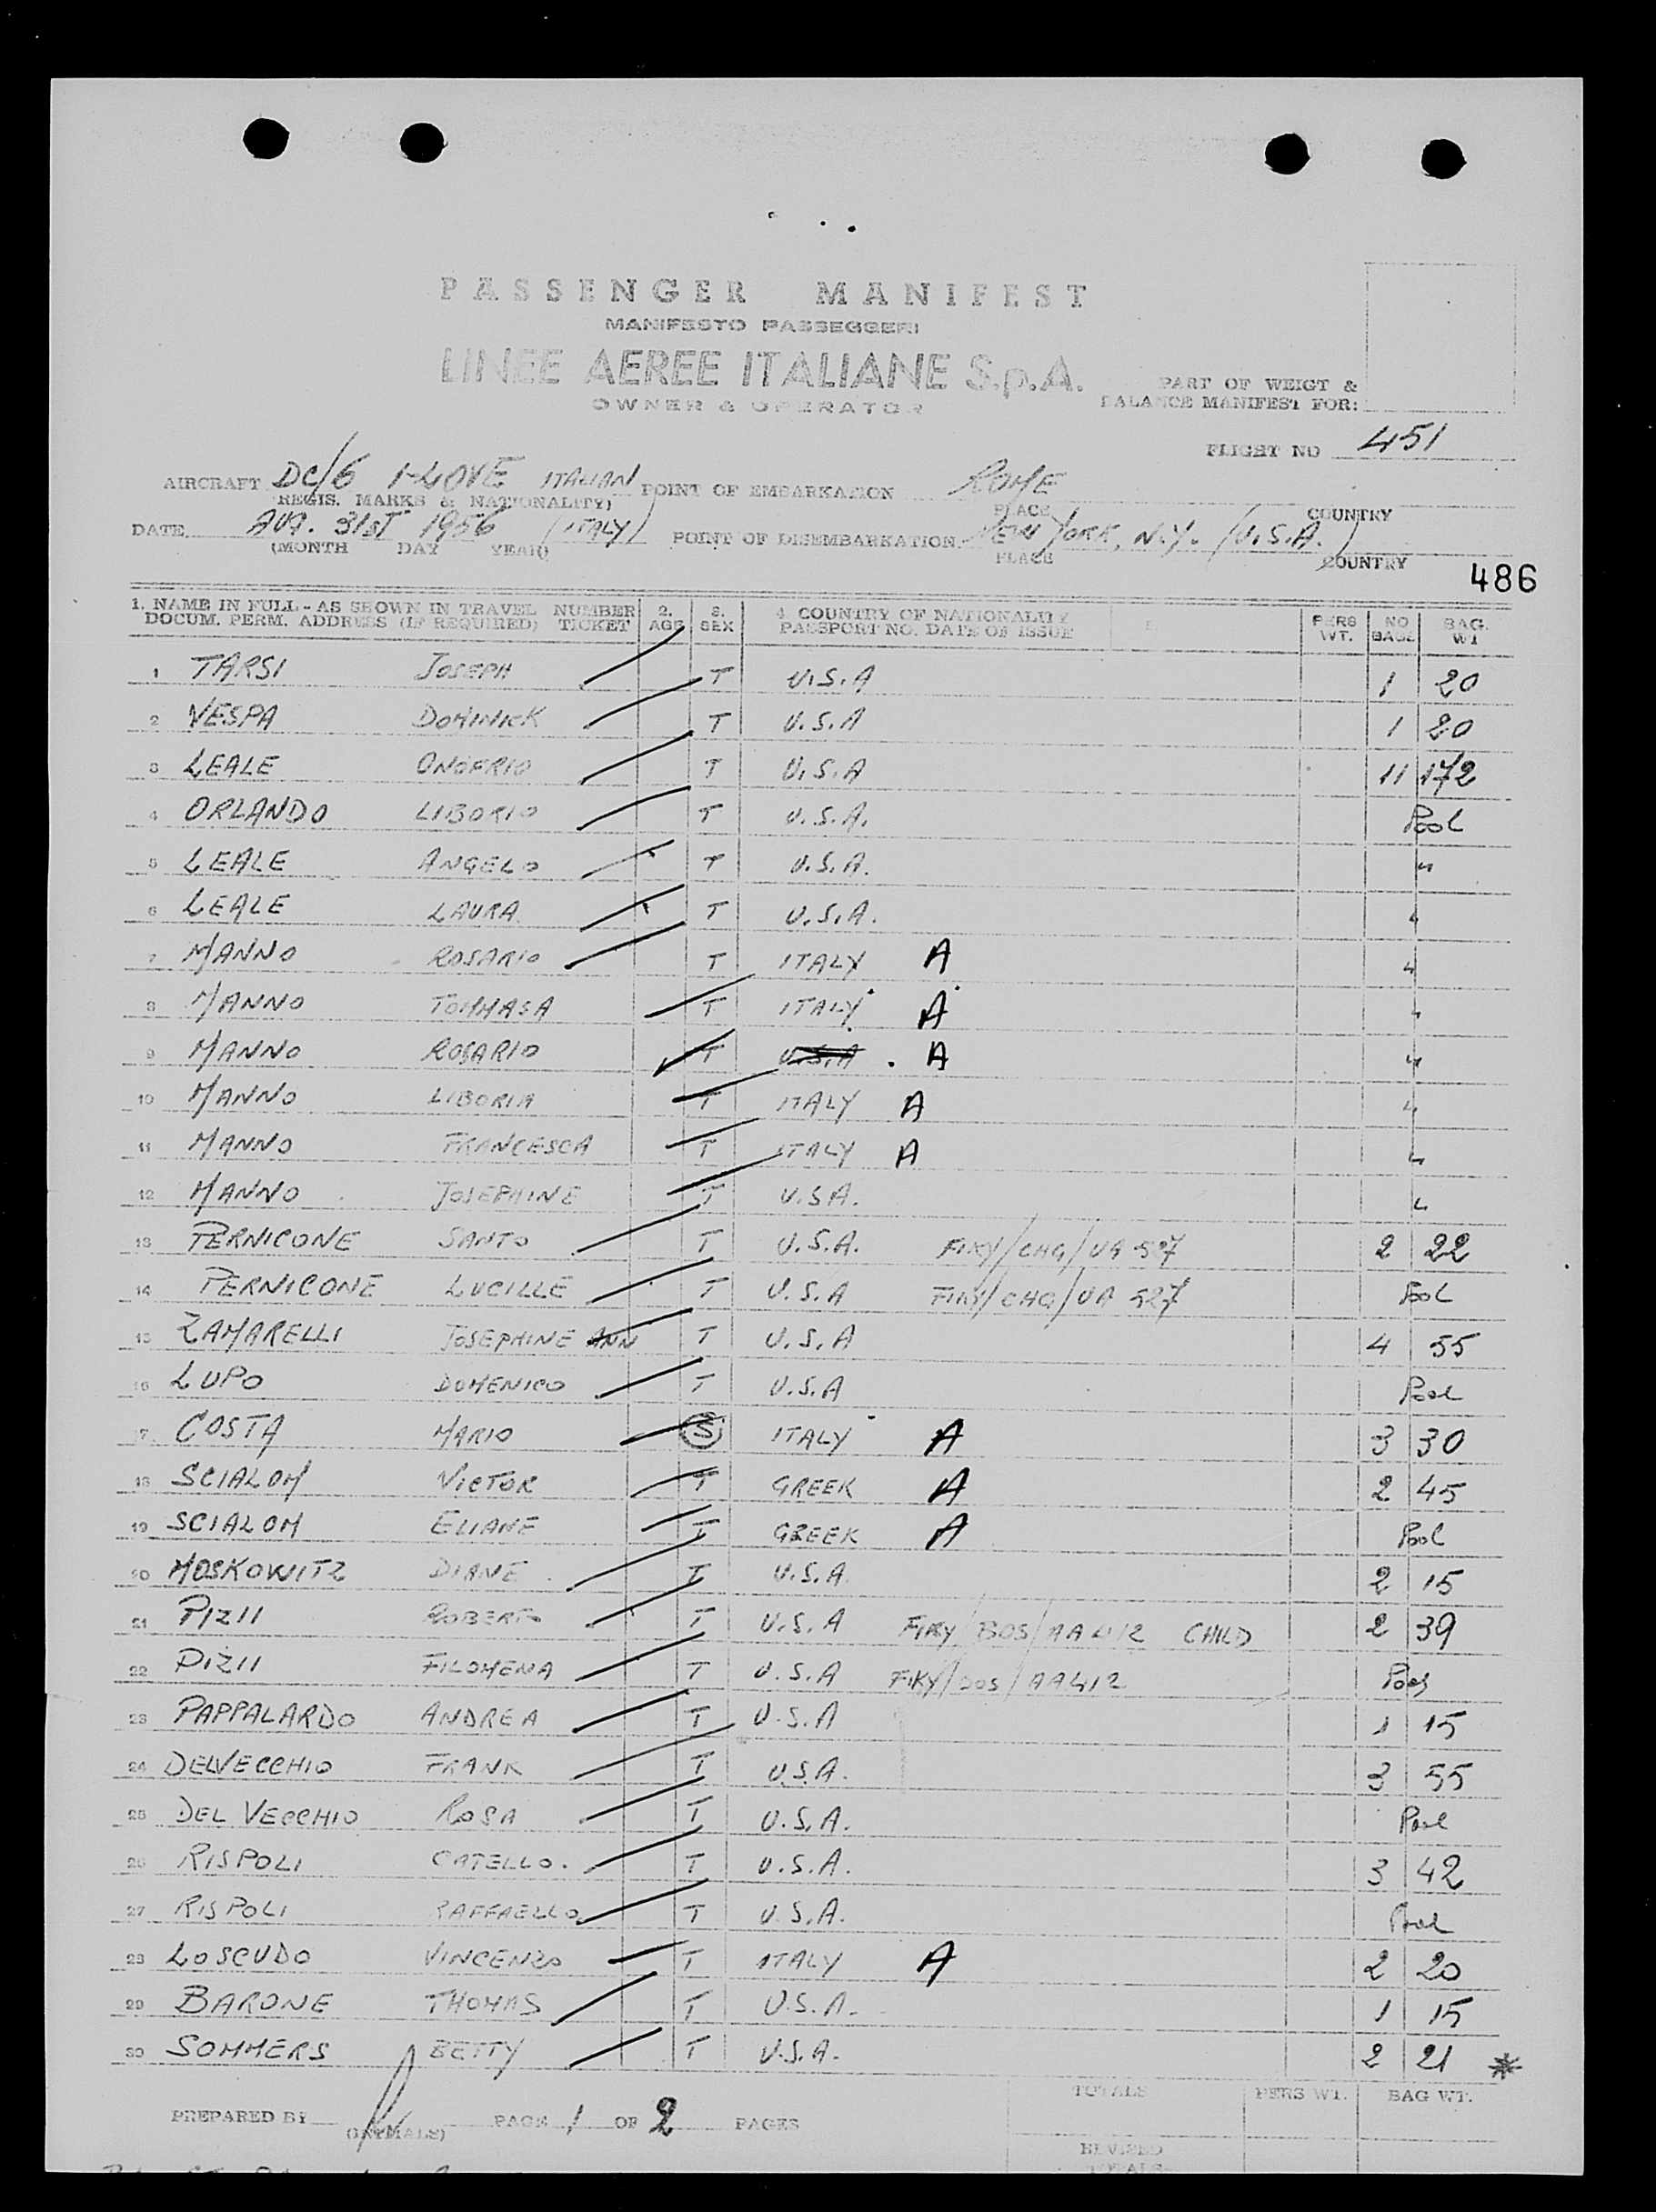 PASSENGER MANIFEST
MANIFESTO PASSEGGERI
LINEE AEREE ITALIANE S.p.A.
OWNER & OPERATOR
PART OF WEIGT &
BALANCE MANIFEST FOR:
FLIGHT NO 451
AIRCRAFT DC/6 I-LOVE ITALIAN POINT OF EMBARKATION ROME
REGIS. MARKS & NATIONALITY) PLACE COUNTRY
DATE AUG. 31ST 1956 (ITALY) POINT OF DISEMBARKATION NEW YORK, N.Y. (U.S.A.)
(MONTH DAY YEAR) PLACE COUNTRY
486
1. NAME IN FULL - AS SHOWN IN TRAVEL NUMBER 2. 3. 4. COUNTRY OF NATIONALITY 5 PERS NO BAG.
DOCUM. PERM. ADDRESS (IF REQUIRED) TICKET AGE SEX PASSPORT NO. DATE OF ISSUE WT. BAGE WT
1 TARSI JOSEPH T U.S.A 1 20
2 VESPA DOMINICK T U.S.A 1 20
3 LEALE ONOFRIO T U.S.A 11 172
4 ORLANDO LIBORIO T U.S.A. Pool
5 LEALE ANGELO T U.S.A. "
6 LEALE LAURA T U.S.A. "
7 MANNO ROSARIO T ITALY A "
8 MANNO TOMMASA T ITALY A "
9 MANNO ROSARIO T U.S.A . A "
10 MANNO LIBORIA T ITALY A "
11 MANNO FRANCESCA T ITALY A "
12 MANNO JOSEPHINE T U.S.A. "
13 PERNICONE SANTO T U.S.A. FIKY/CHG/UA 527 2 22
14 PERNICONE LUCILLE T U.S.A FIKY/CHG/UA 527 Pool
15 ZAMARELLI JOSEPHINE ANN T U.S.A 4 55
16 LUPO DOMENICO T U.S.A Pool
17 COSTA MARIO S ITALY A 3 30
18 SCIALOM VICTOR T GREEK A 2 45
19 SCIALOM ELIANE T GREEK A Pool
20 MOSKOWITZ DIANE T U.S.A. 2 15
21 PIZII ROBERTO T U.S.A FIKY/BOS/AA 412 CHILD 2 39
22 PIZII FILOMENA T U.S.A FIKY/BOS/AA412 Pool
23 PAPPALARDO ANDREA T U.S.A 1 15
24 DELVECCHIO FRANK T U.S.A. 3 55
25 DEL VECCHIO ROSA T U.S.A. Pool
26 RISPOLI CATELLO. T U.S.A. 3 42
27 RISPOLI RAFFAELLO T U.S.A. Pool
28 LOSCUDO VINCENZO T ITALY A 2 20
29 BARONE THOMAS T U.S.A. 1 15
30 SOMMERS BETTY T U.S.A. 2 21 *
TOTALS PERS WT. BAG WT.
PREPARED BY (INITIALS) PAGE 1 OF 2 PAGES
REVISED
TOTALS